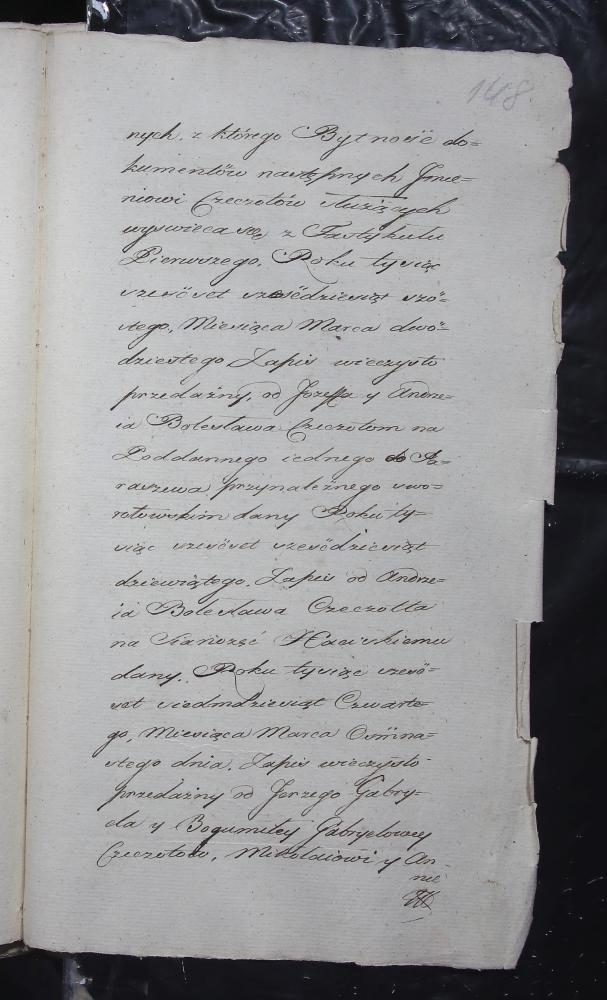 148
nych. z którego Bytność do=
kumentów następnych Imie=
niowi Czeczotów służących
wyswieca się z Fastykułu
Pierwszego. Roku tysiąc
sześćset sześćdziesiąt szó=
stego, Miesiąca Marca dwó=
dziestego Zapis wieczysto
przedażny, od Jozeffa y Andrze=
ia Bolesława Czeczotom na
Poddannego iednego do Pa=
raszewa przynależnego
dany Roku ty=
siąc sześćset sześćdziesiąt
dziewiątego. Zapis od Andrze=
ia Bolesława Czeczotta
na
dany. Roku tysiąc sześć=
set siedmdziesiąt Czwarte=
go, Miesiąca Marca Ośmna=
stego dnia. Zapis wieczysto
przedażny od Jerzego Gabry=
ela y Bogumiłey Gabryelowey
Czeczotow, Mikołaiowi y An=
nie